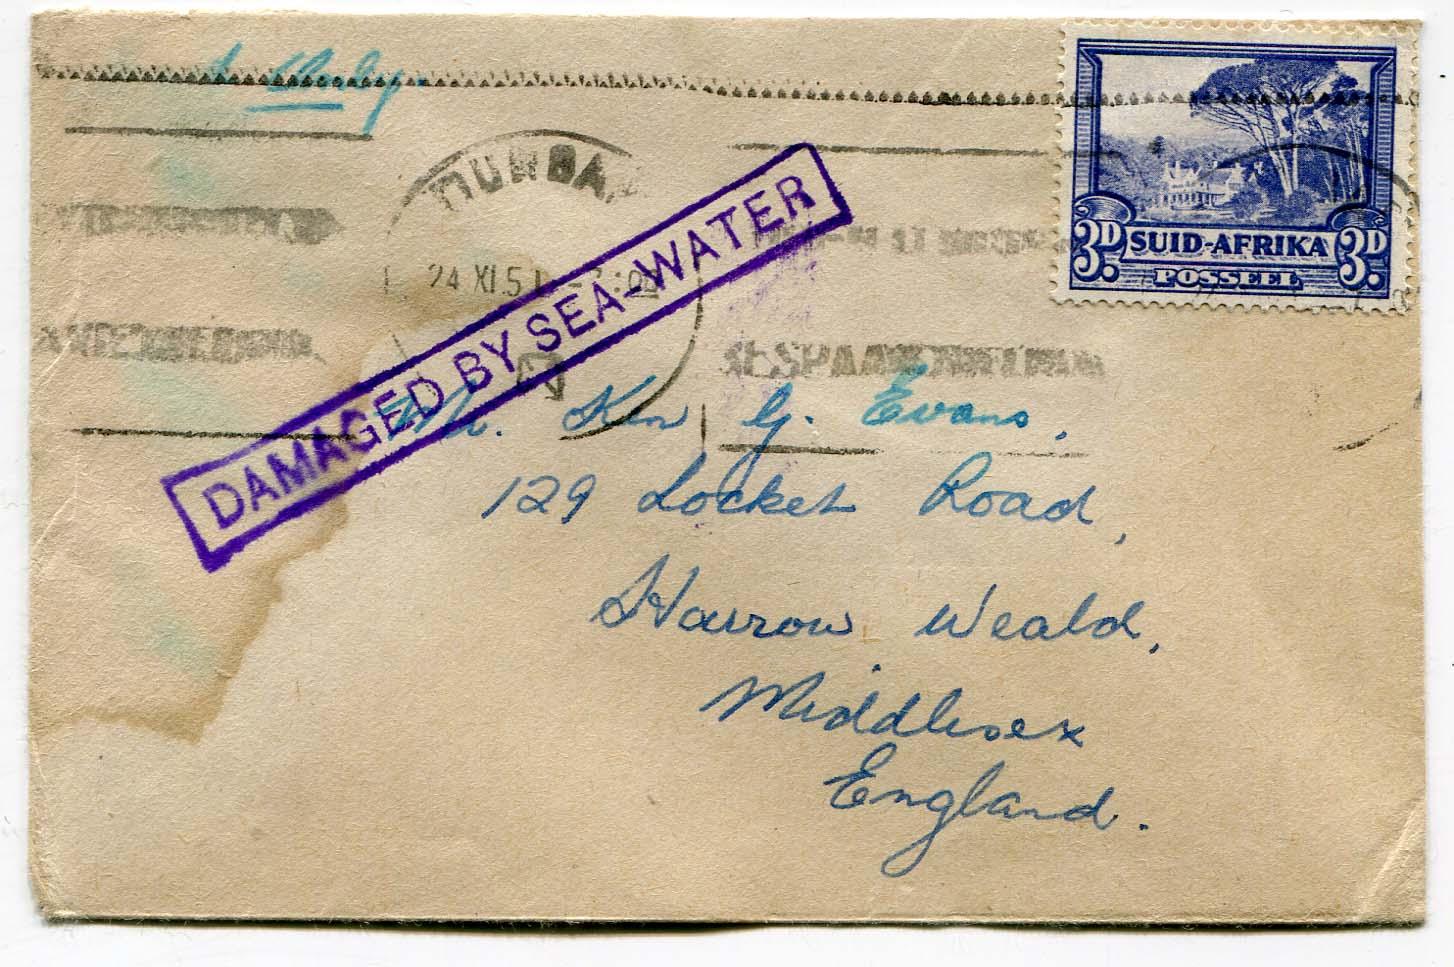 DURBAN
24 XI.51
DAMAGED BY SEA-WATER
3D. SUID-AFRIKA 3D.
POSSEEL
Mr. Ken G. Evans,
129 Locket Road,
Harrow Weald,
Middlesex
England.